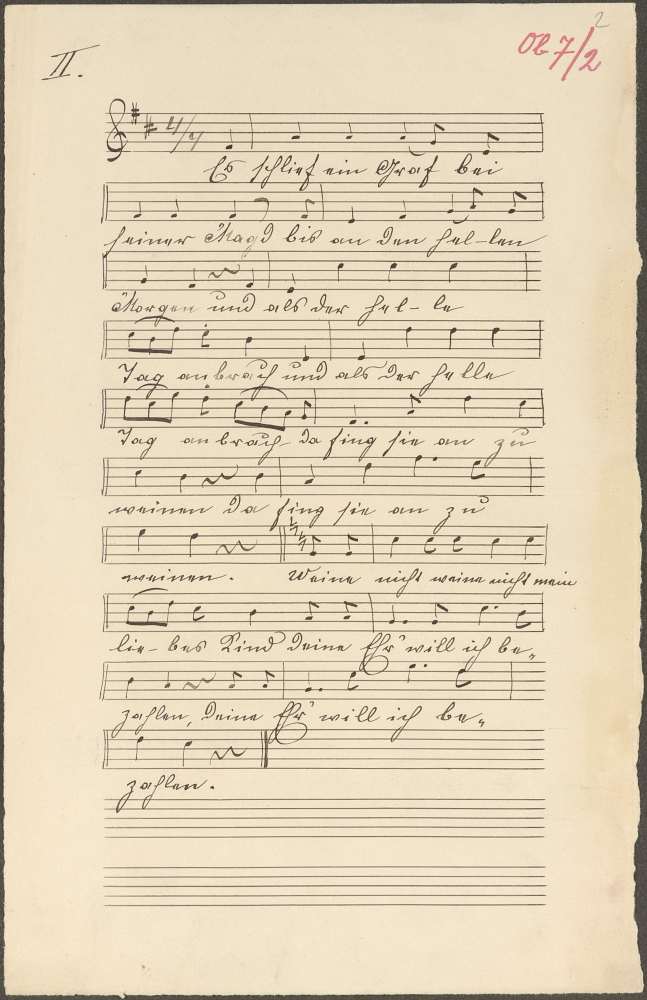 2
Ob 7/2
II.
4/4
Es schlief ein Graf bei
seiner Magd bis an den hel-len
Morgen und als der hel-le
Tag anbrach und als der helle
Tag anbrach da fing sie an zu
weinen da fing sie an zu
weinen. Weine nicht weine nicht mein
lie-bes Kind deine Ehr' will ich be-
zahlen, deine Ehr' will ich be-
zahlen.